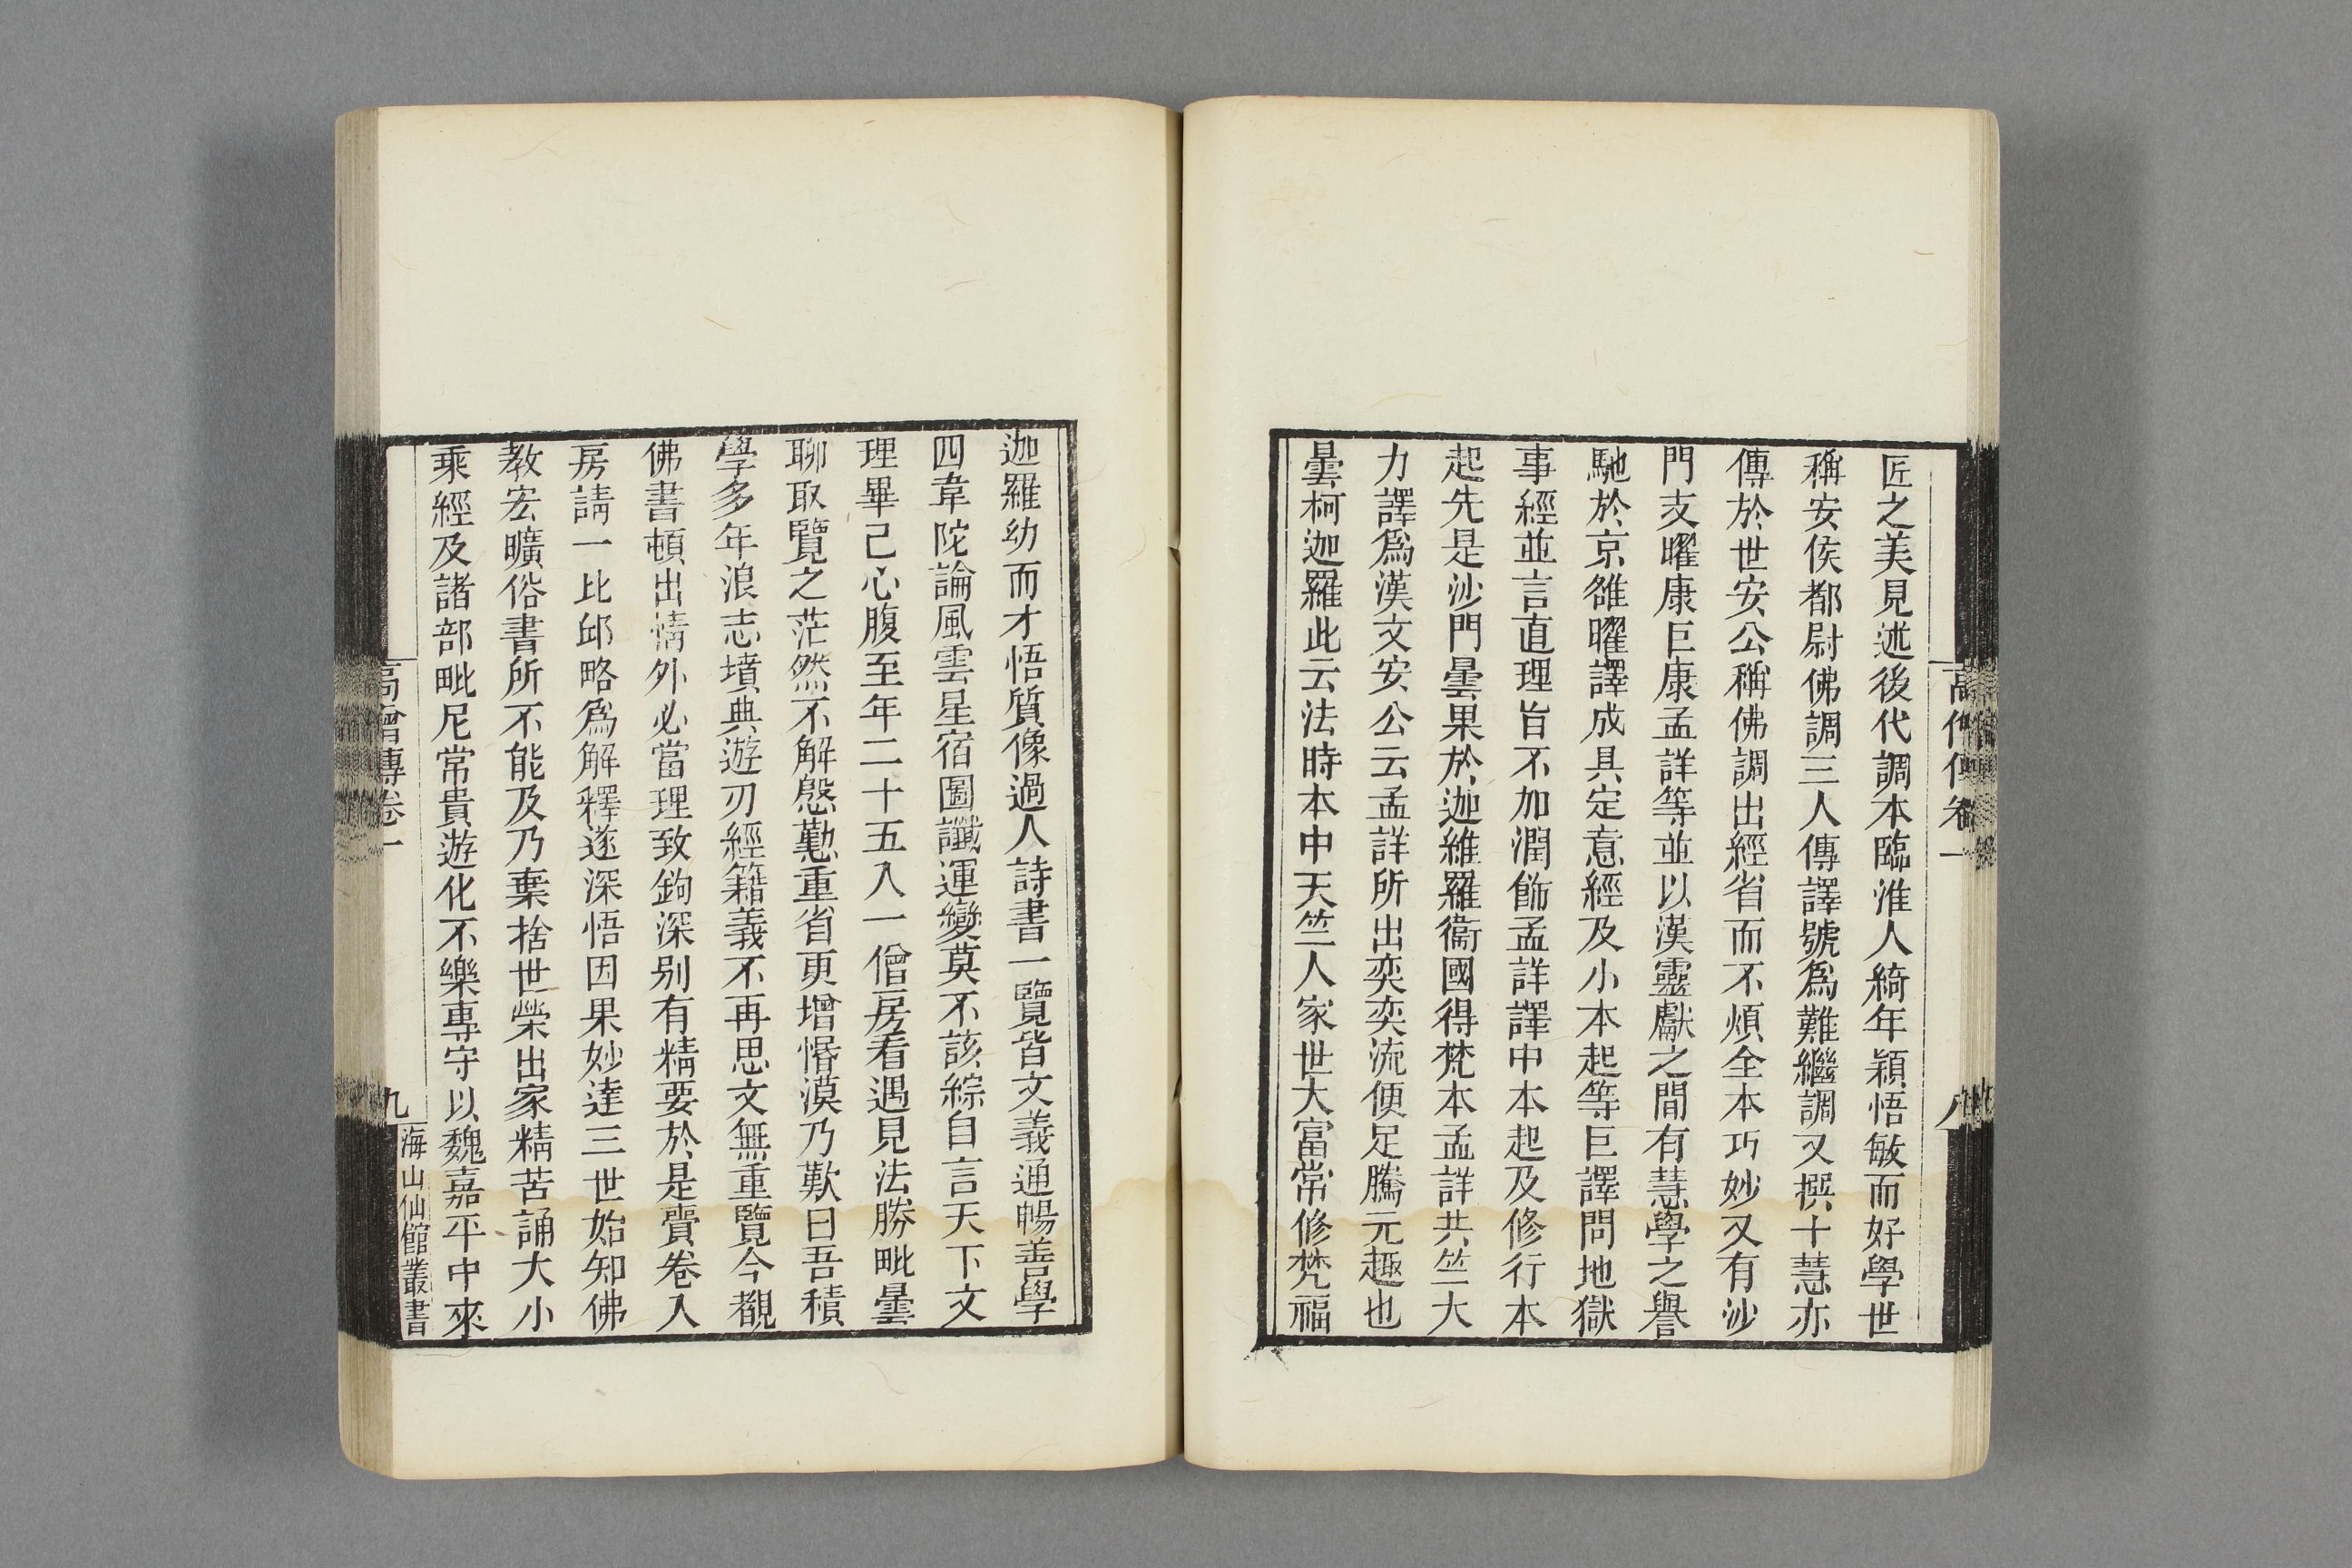 匠之美見述後代調本臨淮人綺年穎悟敏而好學世
稱安侯都尉佛調三人傳譯號爲難繼調又撰十慧亦
傳於世安公稱佛調出經省而不煩全本巧妙又有沙
門支曜康巨康孟詳等並以漢靈獻之間有慧學之譽
馳於京雒曜譯成具定意經及小本起等巨譯問地獄
事經並言直理旨不加潤飾孟詳譯中本起及修行本
起先是沙門曇果於迦維羅衞國得梵本孟詳共竺大
力譯爲漢文安公云孟詳所出奕奕流便足騰元趣也
曇柯迦羅此云法時本中天竺人家世大富常修梵福
迦羅幼而才悟質像過人詩書一覽皆文義通暢善學
四韋陀論風雲星宿圖讖運變莫不該綜自言天下文
理畢己心腹至年二十五入一僧房看遇見法勝毗曇
聊取覽之茫然不解慇懃重省更增惛漠乃歎曰吾積
學多年浪志墳典遊刃經籍義不再思文無重覽今覩
佛書頓出情外必當理致鉤深别有精要於是賷卷入
房請一比邱略爲解釋遂深悟因果妙達三世始知佛
教宏曠俗書所不能及乃棄捨世榮出家精苦誦大小
乘經及諸部毗尼常貴遊化不樂專守以魏嘉平中來
高僧傳卷一
九
海山仙館叢書